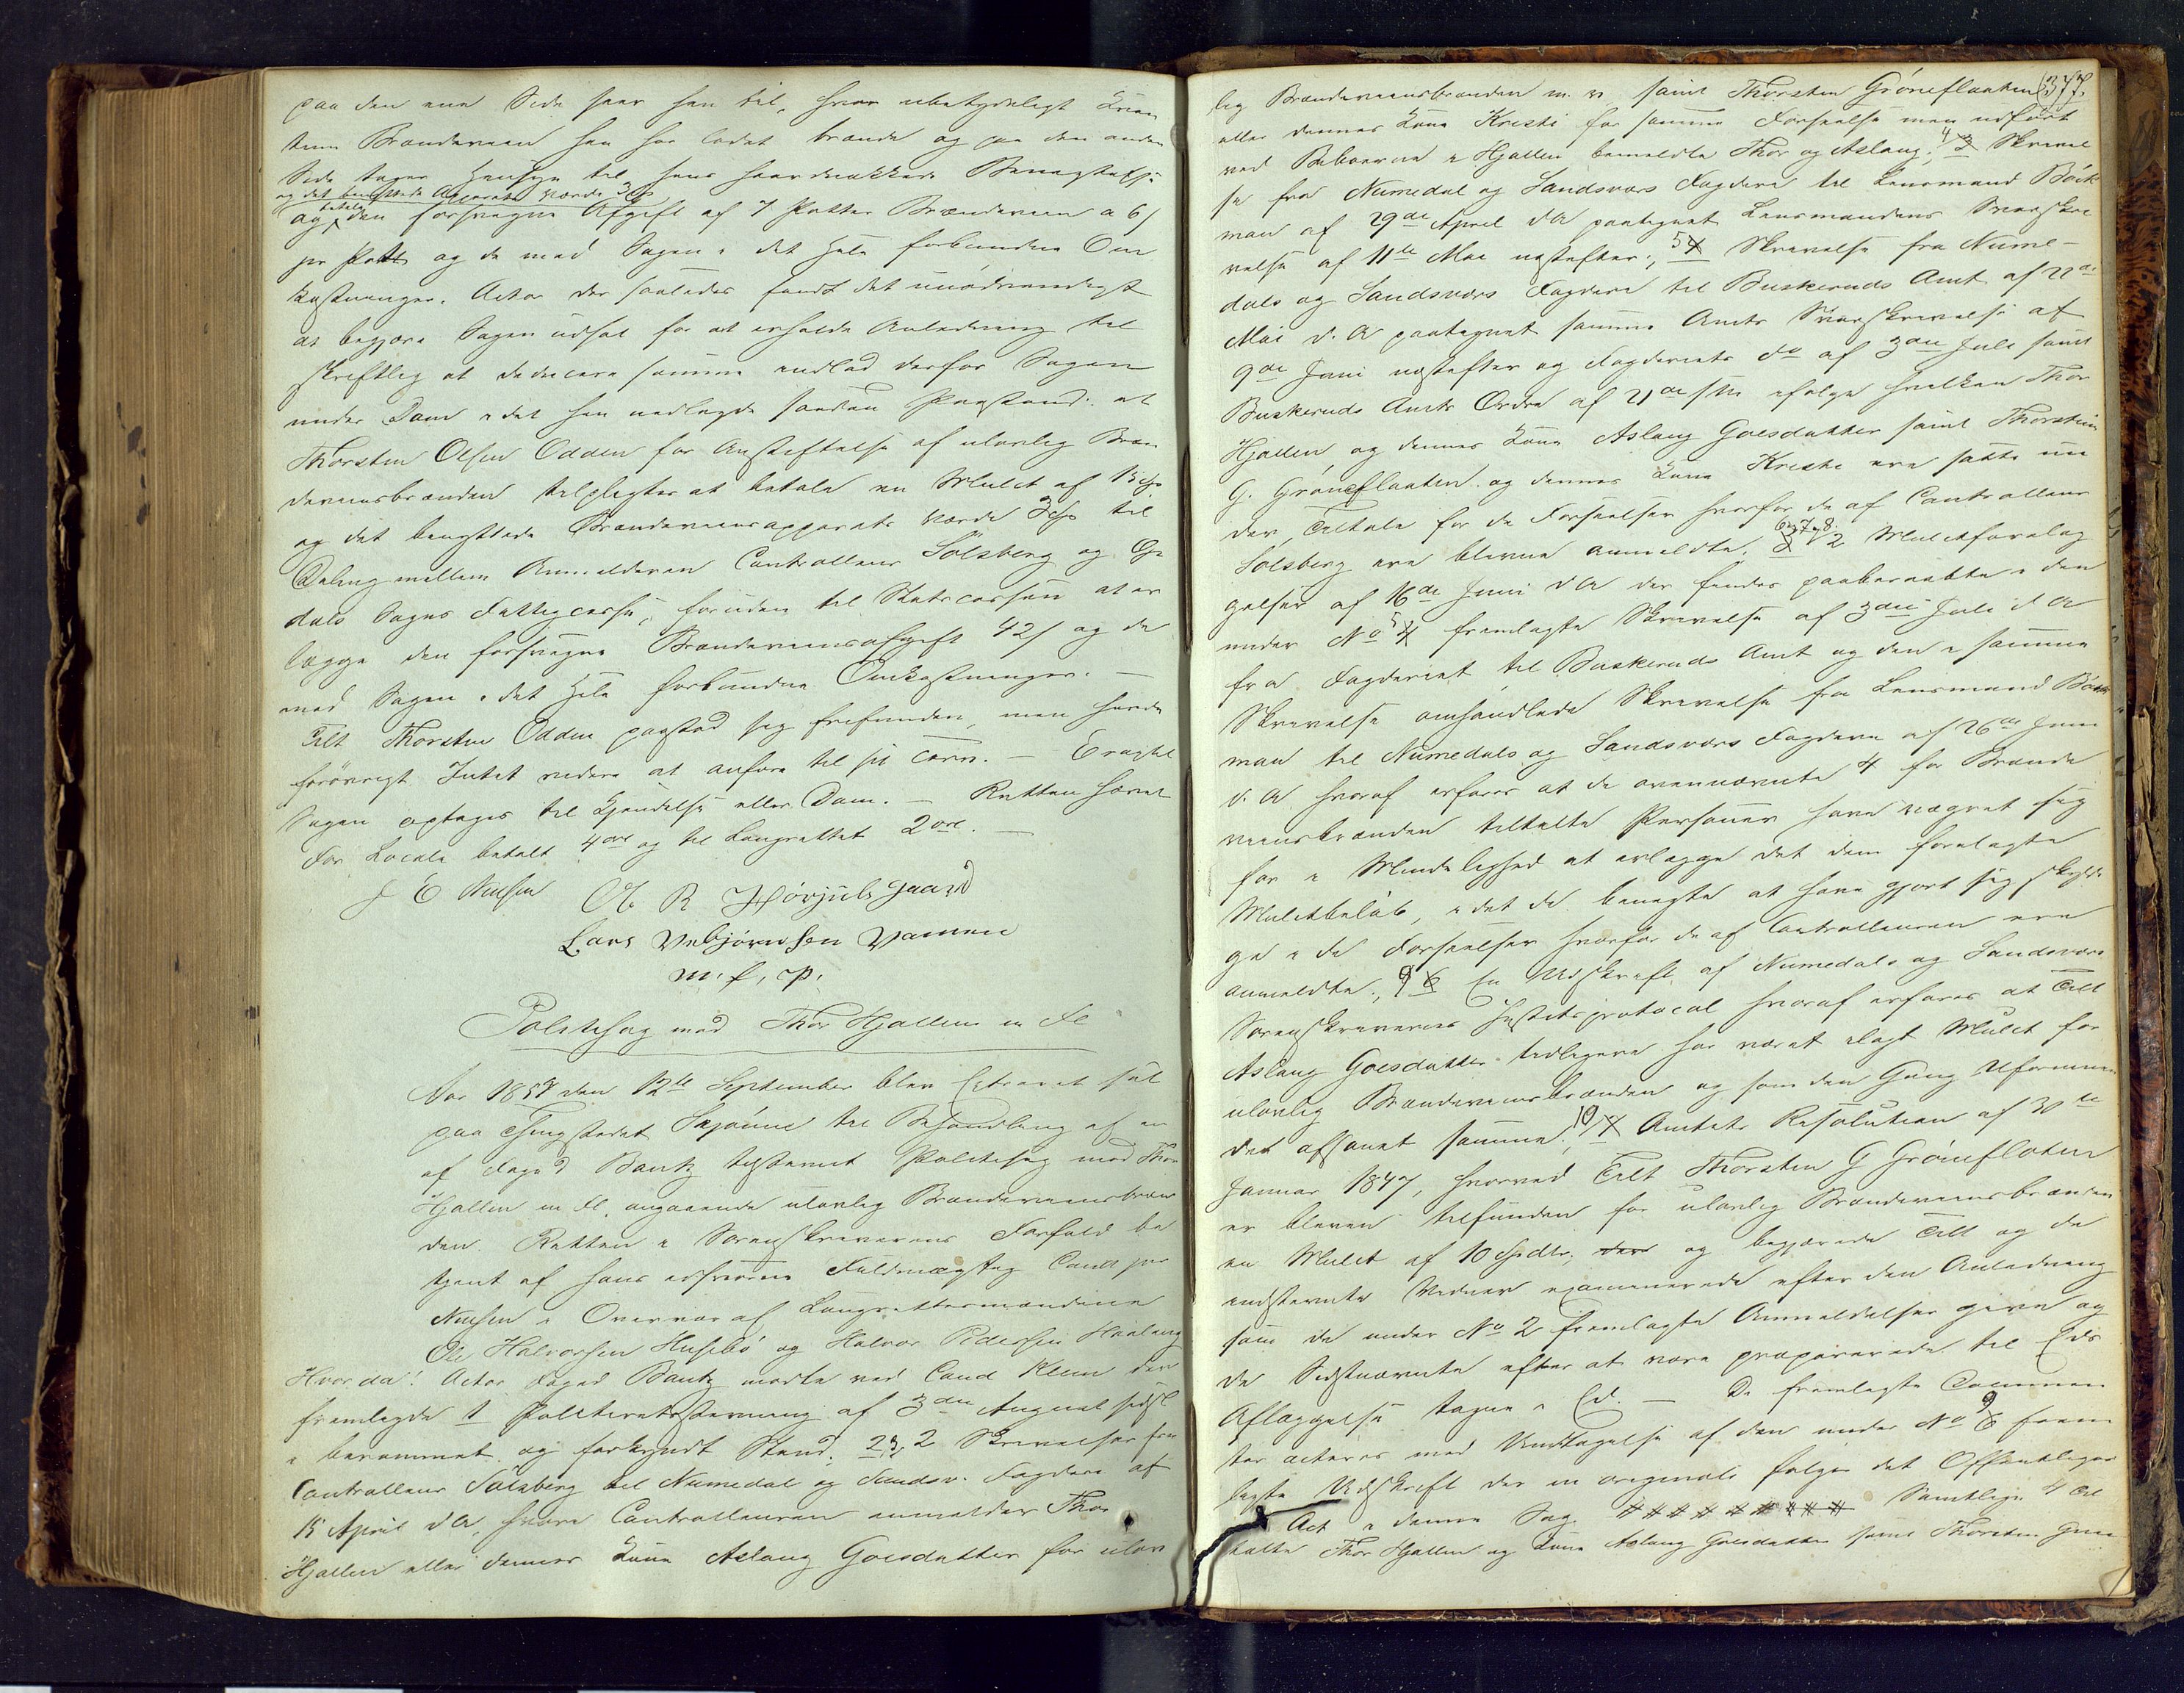 paa den ene Side saavel hen til, hvor ubetydeligt Qvan
tum Brændeviin han har ladet brænde og paa den anden
Side tages Hensyn til hans haardnakkede Benægtelse
og det benyttede Apparats Værdi 3 Spd
og betale den forsvegne Afgift af 7 Potter Brændeviin a 6 s
pr Pott og de med Sagen i det Hele forbundne Om
kostninger. Actor der saaledes fandt det unødvendigt
at begjære Sagen udsat for at erholde Anledning til
skriftlig at deducere samme indlod derfor Sagen
under Dom idet han nedlagde saadan Paastand: at
Thorsten Olsen Odden for Anstiftelse af ulovlig Bræn
deviinsbrænden tilpligtes at betale en Mulct af 15 Spd
og det benyttede Brændeviinsapparats Værdi 3 Spd til
Deling mellem Anmelderen Controlleur Solsberg og Op
dals Sogns Fattigcasse, foruden til Statscassen at er
lægge den forsvegne Brændeviinsafgift 42 s og de
med Sagen i det Hele forbundne Omkostninger. —
Tilt Thorsten Odden paastod sig frifunden, men havde
forøvrigt Intet videre at anføre til sit Tarv. — Eragtet
Sagen optages til Kjendelse eller Dom. — Retten hævet
For Locale betalt 4 ort og til Laugrettet 2 ort. —
J E Nielsen Ole R Hørjulsgaard
Lars Vebjørnsen Vamen
m. f. P.
Politiesag mod Thor Hjallen m Fl
Aar 1857 den 12te September blev Extraret sat
paa Thingstedet Skjønne til Behandling af en
af Foged Bautz udstævnt Politiesag mod Thor
Hjallen m Fl. angaaende ulovlig Brændeviinsbræn
den. Retten i Sorenskriverens Forfald be
tjent af hans edsvorne Fuldmægtig Cand jur
Nielsen i Overvær af Laugrettesmændene
Ole Halvorsen Husebø og Halvor Pedersen Haaland
Hvorda! Actor Foged Bautz mødte ved Cand Klem der
fremlagde 1 Politieretsstævning af 3die August sidstl
i berammet og forkyndt Stand. 2, 3, 2 Skrivelser fra
Controlleur Solsberg til Numedal og Sandsv. Fogderi af
15 April d A, hvori Controlleuren anmelder Thor
Hjallen eller dennes Kone Aslaug Goesdatter for ulov
377.
lig Brændeviinsbrænden m. v. samt Thorsten Grøneflaaten
eller dennes Kone Kristi for samme Forseelse men udført
ved Beboerne i Hjallen bemeldte Thor og Aslaug; 4 3 Skrivel
se fra Numedal og Sandsværs Fogderi til Lensmand Böck
man af 29de April d A paategnet Lensmandens Svarskri
velse af 11te Mai næstefter; 5 4 Skrivelse fra Nume-
dals og Sandsværs Fogderi til Buskeruds Amt af 22de
Mai d. A paategnet samme Amts Svarskrivelse af
9de Juni næstefter og Fogderiets do af 3die Juli samt
Buskeruds Amts Ordre af 21de s M ifølge hvilken Thor
Hjallen og dennes Kone Aslaug Goesdatter samt Thorstein
G. Grøneflaaten og dennes Kone Kristi ere satte un
der Tiltale for de Forseelser hvorfor de af Controlleur
Solsberg ere blevne anmeldte. 6, 7, 8. 2 Mulctforelæg
gelser af 16de Juni d A der findes paaberaabte i den
under No 5 4 fremlagte Skrivelse af 3die Juli d A
fra Fogderiet til Buskeruds Amt og den i samme
Skrivelse omhandlede Skrivelse fra Lensmand Böck
man til Numedals og Sandsværs Fogderi af 26de Juni
d. A hvoraf erfares at de ovennævnte 4 for Brænde
viinsbrænden tiltalte Personer have vægret sig
for i Mindelighed at erlægge det dem forelagte
Mulctbeløb, idet de benegte at have gjort sig skyldi
ge i de Forseelser hvorfor de af Controlleuren ere
anmeldte; 9 6 En Udskrift af Numedals og Sandsværs
Sorenskriveries Justitsprotocol hvoraf erfares at Tilt
Aslaug Goesdatter tidligere har været ilagt Mulct for
ulovlig Brændeviinsbrænden og som den Gang Uformuen
det afsonet samme; 10 7 Amtets Resolution af 30te
Januar 1847, hvorved Tilt Thorsten G Grøneflaten
er bleven tilfunden for ulovlig Brændeviinsbrænden
en Mulct af 10 Spdlr; og begjærede Tilt og de
indstævnte Vidner examinerede efter den Anledning
som de under No 2 fremlagte Anmeldelser give og
de Sidstnævnte efter at være præparerede til Eds
Aflæggelse tagne i Ed. — De fremlagte Documen
ter acteres med Undtagelse af den under No 9 6 frem
lagte Udskrift der in originali følger det Offentliges
Act i denne Sag. # # # # # # # # # Samtlige 4 Til
talte Thor Hjallen og Kone Aslaug Goesdatter samt Thorsten Grøne